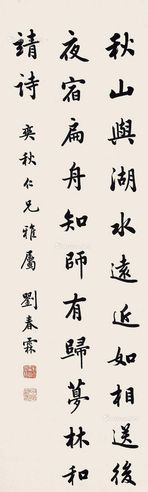 秋山與湖水遠近如相送後
夜宿扁舟知師有歸夢林和
靖詩 奕秋仁兄雅屬 劉春霖